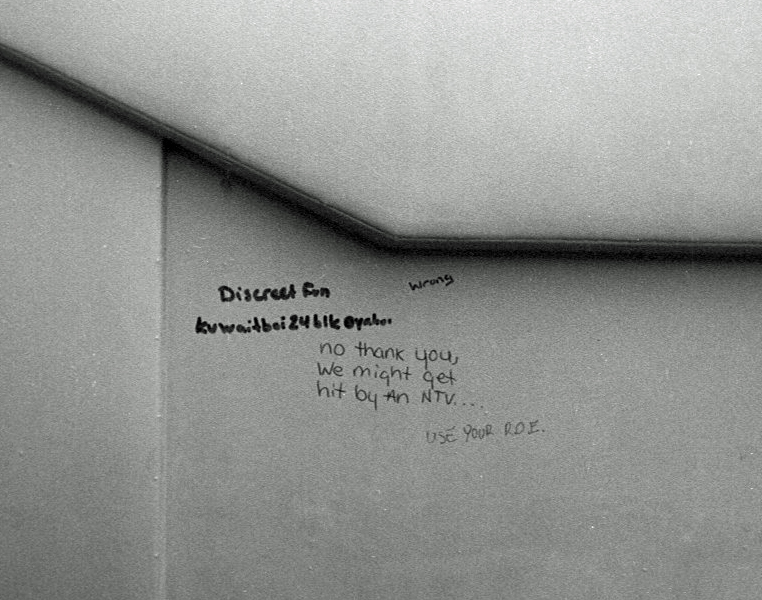 Discreet Fun
Wrong
kuwaitboi24blk@yahoo
no thank you,
We might get
hit by An NTV....
USE YOUR R.O.E.